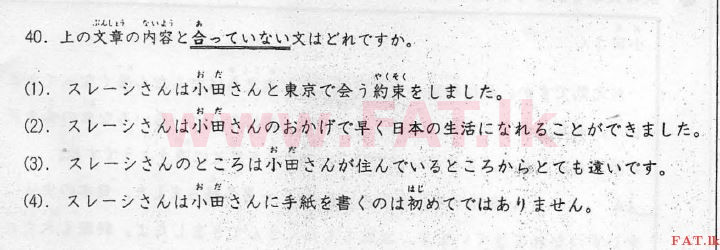 40. 上の文章の内容と合っていない文はどれですか。
(1). スレーシさんは小田さんと東京で会う約束をしました。
(2). スレーシさんは小田さんのおかげで早く日本の生活になれることができました。
(3). スレーシさんのところは小田さんが住んでいるところからとても遠いです。
(4). スレーシさんは小田さんに手紙を書くのは初めてではありません。
www.FAT.lk
FAT.lk